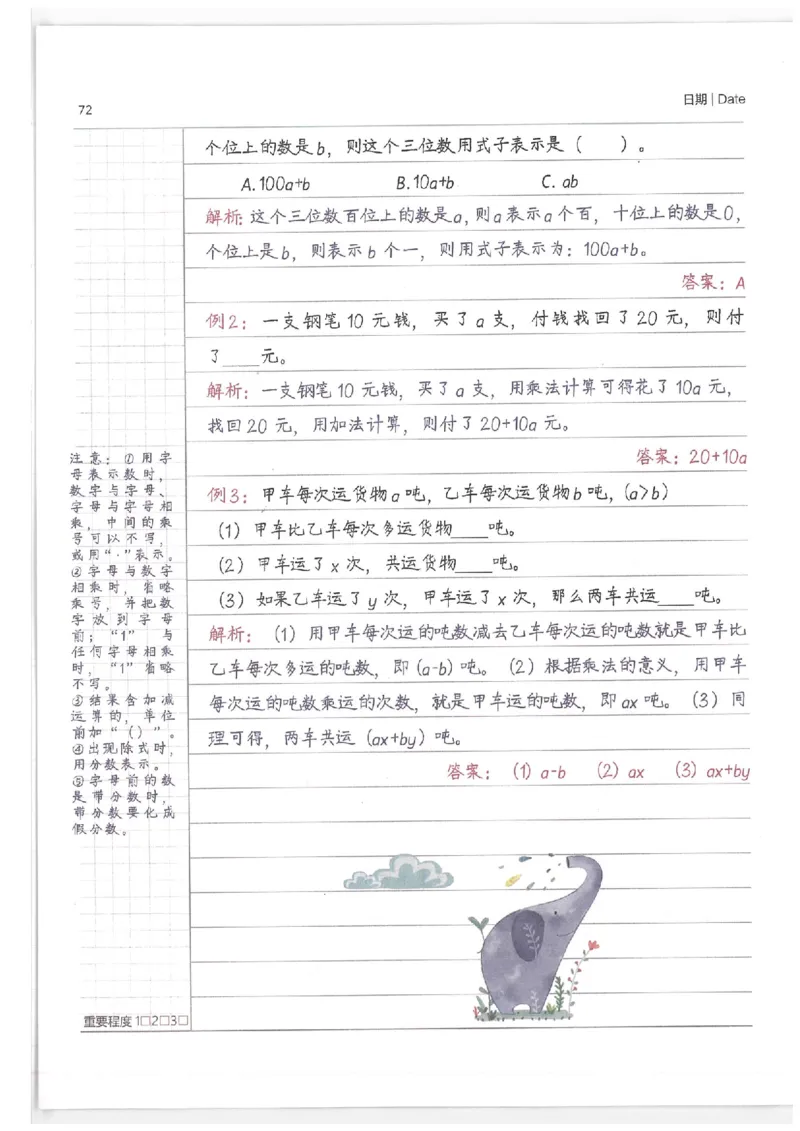 72
日期 | Date
个位上的数是b，则这个三位数用式子表示是（　）。
A.100a+b　B.10a+b　C. ab
解析：这个三位数百位上的数是a，则a表示a个百，十位上的数是0，
个位上是b，则表示b个一，则用式子表示为：100a+b。
答案：A
例2：一支钢笔10元钱，买了a支，付钱找回了20元，则付
了____元。
解析：一支钢笔10元钱，买了a支，用乘法计算可得花了10a元，
找回20元，用加法计算，则付了20+10a元。
答案：20+10a
例3：甲车每次运货物a吨，乙车每次运货物b吨，(a>b)
（1）甲车比乙车每次多运货物____吨。
（2）甲车运了x次，共运货物____吨。
（3）如果乙车运了y次，甲车运了x次，那么两车共运____吨。
解析：（1）用甲车每次运的吨数减去乙车每次运的吨数就是甲车比
乙车每次多运的吨数，即(a-b)吨。（2）根据乘法的意义，用甲车
每次运的吨数乘运的次数，就是甲车运的吨数，即ax吨。（3）同
理可得，两车共运（ax+by）吨。
答案：（1）a-b　（2）ax　（3）ax+by
注意：①用字
母表示数时，
数字与字母、
字母与字母相
乘，中间的乘
号可以不写，
或用“·”表示。
②字母与数字
相乘时，省略
乘号，并把数
字放到字母
前；“1”与
任何字母相乘
时，“1”省略
不写。
③结果含加减
运算的，单位
前加“（）”。
④出现除式时，
用分数表示。
⑤字母前的数
是带分数时，
带分数要化成
假分数。
重要程度 1□2□3□